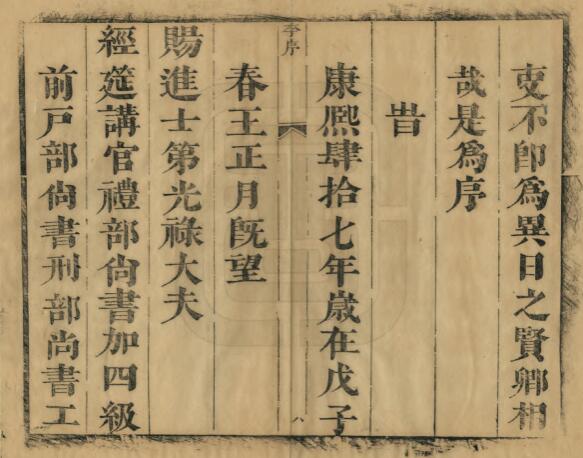 吏不卽爲異日之賢卿相
哉是爲序
旹
康熈肆拾七年歲在戊子
李序
八
春王正月旣望
賜進士第光祿大夫
經筵講官禮部尙書加四級
前戶部尙書刑部尙書工